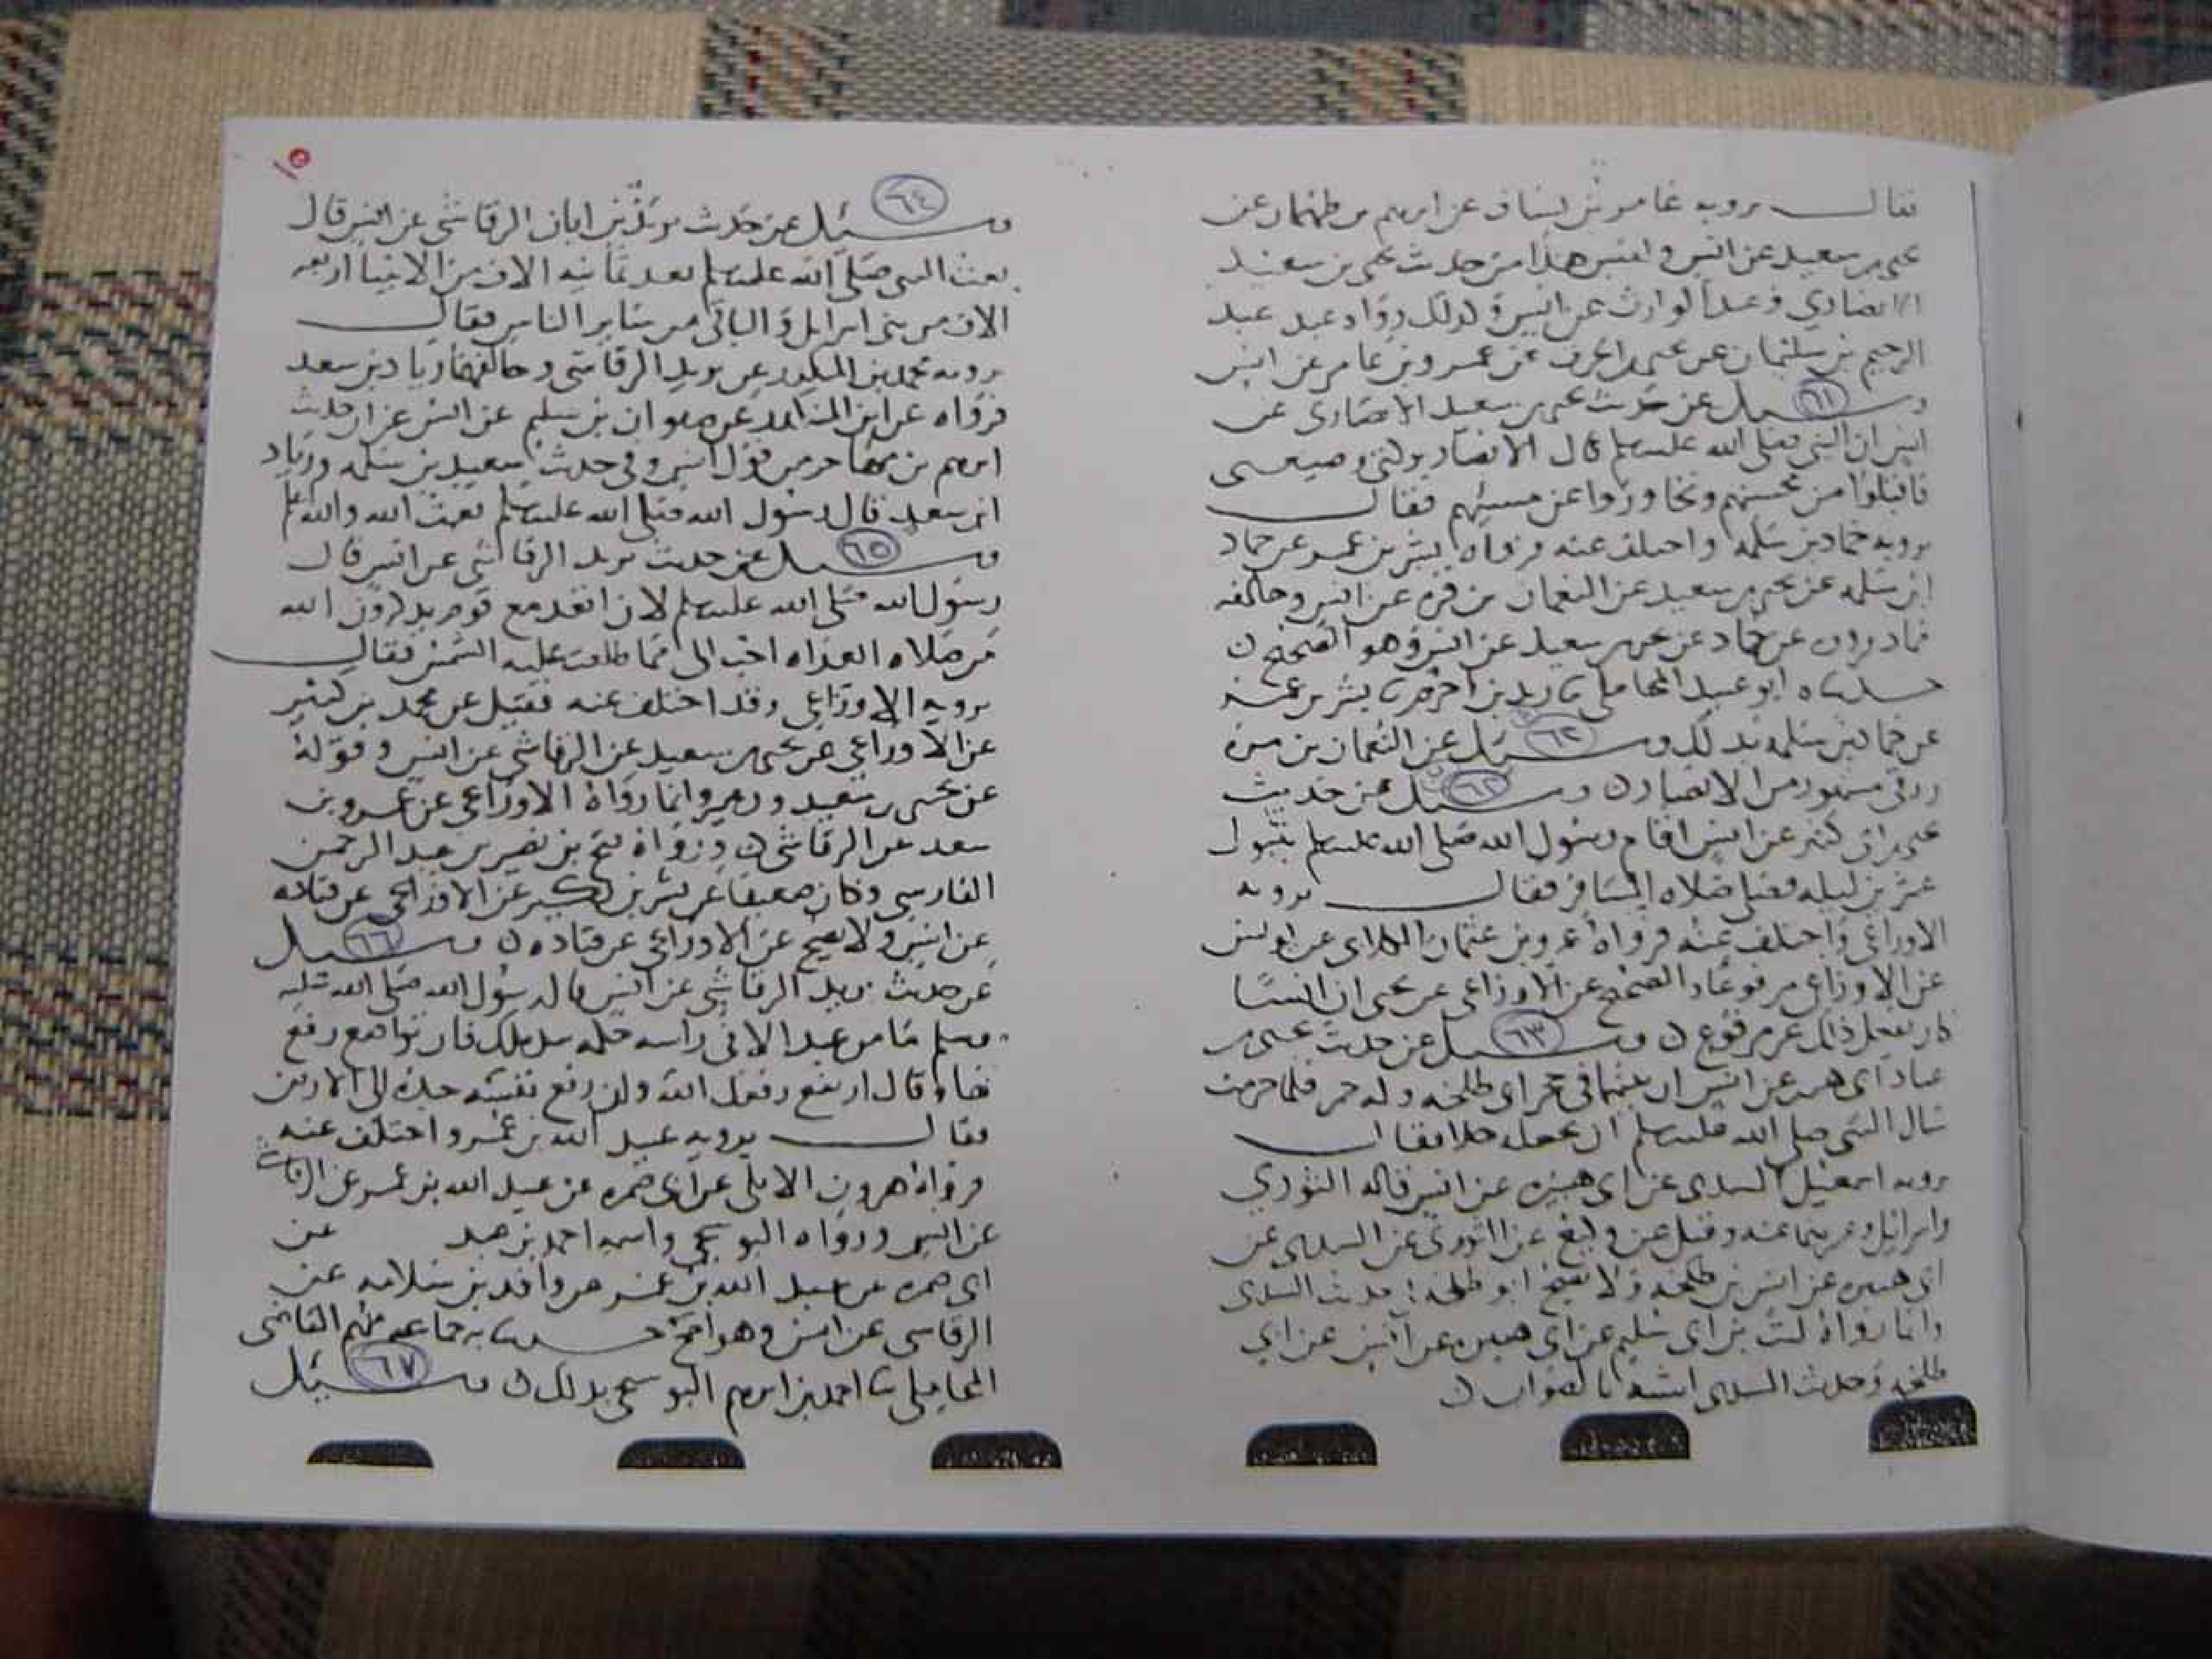 فقال يرويه عامر بن يساف عن ابرهيم بن طهمان عن
يحيى بن سعيد عن انس وليس هذا من حديث يحيى بن سعيد
الانصاري وعبد الوارث عن انس وكذلك رواه عبد
الرحيم بن سليمان عن عمرو بن عامر عن انس
٦١ وسئل عن حديث يحيى بن سعيد الانصاري عن
انس ان النبي صلى الله عليه وسلم قال الانصار كرشي وعيبتي
فاقبلوا من محسنهم وتجاوزوا عن مسيئهم فقال
يرويه حماد بن سلمة واختلف عنه فرواه بشر بن عمر عن حماد
ابن سلمه عن يحيى بن سعيد عن النعمان بن مرة عن انس وخالفه
عن حماد عن يحيى بن سعيد عن انس وهو الصحيح ن
حدثناه ابو عبيد المحاملي ثنا زيد بن اخزم ثنا بشر بن عمر
عن حماد بن سلمه بذلك ٦٢ وسئل عن النعمان بن مرة
زرقي مشهور من الانصار ن ٦٢ وسئل عن حديث
يحيى بن ابي كثير عن انس اقام رسول الله صلى الله عليه وسلم بتبوك
عشرين ليله فصلى صلاه المسافر فقال يرويه
الاوزاعي واختلف عنه فرواه عمرو بن عثمان الكلابي عن
عن الاوزاعي مرفوعا والصحيح عن الاوزاعي عن يحيى ان انسا
كان يفعل ذلك غير مرفوع ن ٦٣ وسئل عن حديث يحيى بن
عباد ابي هبيرة عن انس ان يتيما في حجر ابي طلحه وله خمر فلما حرمت
سال النبي صلى الله عليه وسلم ان يجعل خلا فقال
يرويه اسمعيل السدي عن ابي هبيره عن انس قاله الثوري
واسرائيل وغيرهما عنه وقيل عن وكيع عن الثوري عن السدي عن
ابي هبيره عن انس بن طلحه ولا يصح ابو طلحه حديث السدي
وانما رواه ليث بن ابي سليم عن ابي هبيره عن انس عن ابي
طلحه وحديث السدي اشبه بالصواب ن
١٥
٦٤ وسئل عن حديث يزيد بن ابان الرقاشي عن انس قال
بعث النبي صلى الله عليه وسلم بعد ثمانيه الاف من الانبيا اربعه
الاف من بني اسرايل والباقي من سائر الناس فقال
يرويه محمد بن المنكدر عن يزيد الرقاشي وخالفهما زياد بن سعد
فرواه عن ابن المنكدر عن صفوان بن سليم عن انس
ابرهيم بن مهاجر من قول انس وفي حديث سعيد بن سلمه وزياد
ابن سعد قال رسول الله صلى الله عليه وسلم بعث الله والله اعلم
٦٥ وسئل عن حديث يزيد الرقاشي عن انس قال
رسول الله صلى الله عليه وسلم لان اقعد مع قوم يذكرون الله
من صلاه الغداه احب الي مما طلعت عليه الشمس فقال
يرويه الاوزاعي وقد اختلف عنه فقيل عن محمد بن كثير
عن الاوزاعي عن يحيى بن سعيد عن الرقاشي عن انس وقوله
عن يحيى بن سعيد وهم وانما رواه الاوزاعي عن عمرو بن
سعد عن الرقاشي ن ورواه فتح بن نصير بن عبد الرحمن
الفارسي وكان ضعيفا عن بشر بن بكير عن الاوزاعي عن قتاده
عن انس ولا يصح عن الاوزاعي عن قتاده ن ٦٦ وسئل
عن حديث يزيد الرقاشي عن انس قال رسول الله صلى الله عليه
وسلم ما من عبد الا في راسه حكمه بيد ملك فان تواضع رفع
وقال ارتفع رفعك الله وان رفع نفسه جذبه الى الارض
فقال يرويه عبيد الله بن عمر واختلف عنه
فرواه هرون الايلي عن ابي ضمره عن عبيد الله بن عمر عن الرقاشي
عن انس ورواه البوسنجي واسمه احمد بن عن
ابي ضمره عن عبيد الله بن عمر عن واقد بن سلامه عن
الرقاشي عن انس وهو اصح حدثنا به جماعه منهم القاضي
المحاملي ثنا احمد بن ابرهيم البوسنجي بذلك ن ٦٧ وسئل